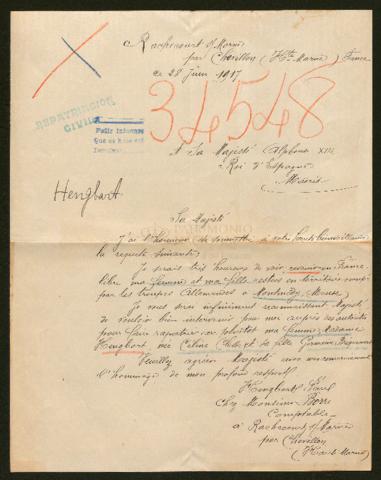 à Rachecourt s/ Marne
par Chevillon (Hte Marne) France
ce 28 Juin 1917
34548
REPATRIACION
CIVIL
Pedir informes
A Sa Majesté Alphonse XIII
Roi d'Espagne
Madrid
Hengbart
Sa Majesté
J'ai l'honneur de soumettre à votre haute bienveillance
la requête suivante:
Je serais très heureux de voir revenir en France
libre ma femme et ma fille restées en territoire occupé
par les troupes allemandes à Montmédy, Meuse,
Je vous serai infiniment reconnaissant Majesté
de vouloir bien intervenir pour moi auprès des autorités
pour faire rapatrier ma femme, Madame
Hengbart née Céline et sa fille
Veuillez agréer Majesté avec mes remerciements
l'hommage de mon profond respect
Hengbart Paul
Chez Monsieur Borri
Comptable
à Rachecourt s/ Marne
par Chevillon
(Haute Marne)